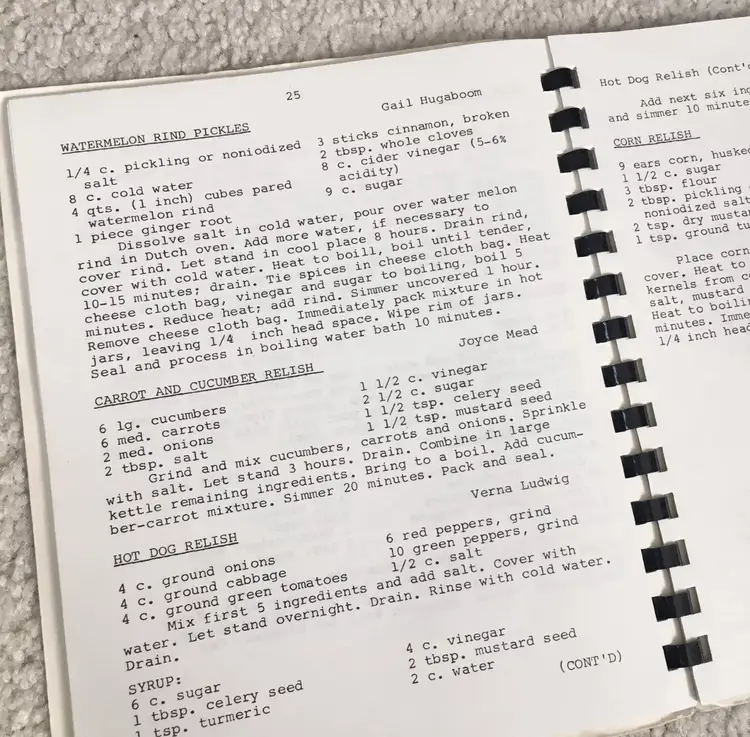 25
Gail Hugaboom
WATERMELON RIND PICKLES
1/4 c. pickling or noniodized
salt
8 c. cold water
4 qts. (1 inch) cubes pared
watermelon rind
1 piece ginger root
3 sticks cinnamon, broken
2 tbsp. whole cloves
8 c. cider vinegar (5-6%
acidity)
9 c. sugar
Dissolve salt in cold water, pour over water melon
rind in Dutch oven. Add more water, if necessary to
cover rind. Let stand in cool place 8 hours. Drain rind,
cover with cold water. Heat to boill, boil until tender,
10-15 minutes; drain. Tie spices in cheese cloth bag. Heat
cheese cloth bag, vinegar and sugar to boiling, boil 5
minutes. Reduce heat; add rind. Simmer uncovered 1 hour.
Remove cheese cloth bag. Immediately pack mixture in hot
jars, leaving 1/4 inch head space. Wipe rim of jars.
Seal and process in boiling water bath 10 minutes.
Joyce Mead
CARROT AND CUCUMBER RELISH
6 lg. cucumbers
6 med. carrots
2 med. onions
2 tbsp. salt
1 1/2 c. vinegar
2 1/2 c. sugar
1 1/2 tsp. celery seed
1 1/2 tsp. mustard seed
Grind and mix cucumbers, carrots and onions. Sprinkle
with salt. Let stand 3 hours. Drain. Combine in large
kettle remaining ingredients. Bring to a boil. Add cucum-
ber-carrot mixture. Simmer 20 minutes. Pack and seal.
Verna Ludwig
HOT DOG RELISH
4 c. ground onions
4 c. ground cabbage
4 c. ground green tomatoes
6 red peppers, grind
10 green peppers, grind
1/2 c. salt
Mix first 5 ingredients and add salt. Cover with
water. Let stand overnight. Drain. Rinse with cold water.
Drain.
SYRUP:
6 c. sugar
1 tbsp. celery seed
1 tsp. turmeric
4 c. vinegar
2 tbsp. mustard seed
2 c. water
(CONT'D)
Hot Dog Relish (Cont'd
Add next six
and simmer 10 minute
CORN RELISH
9 ears corn, husked
1 1/2 c. sugar
3 tbsp. flour
2 tbsp. pickling
noniodized salt
2 tsp. dry
1 tsp. ground
Place corn
cover. Heat to
kernels from
salt, mustard
Heat to
minutes.
1/4 inch head